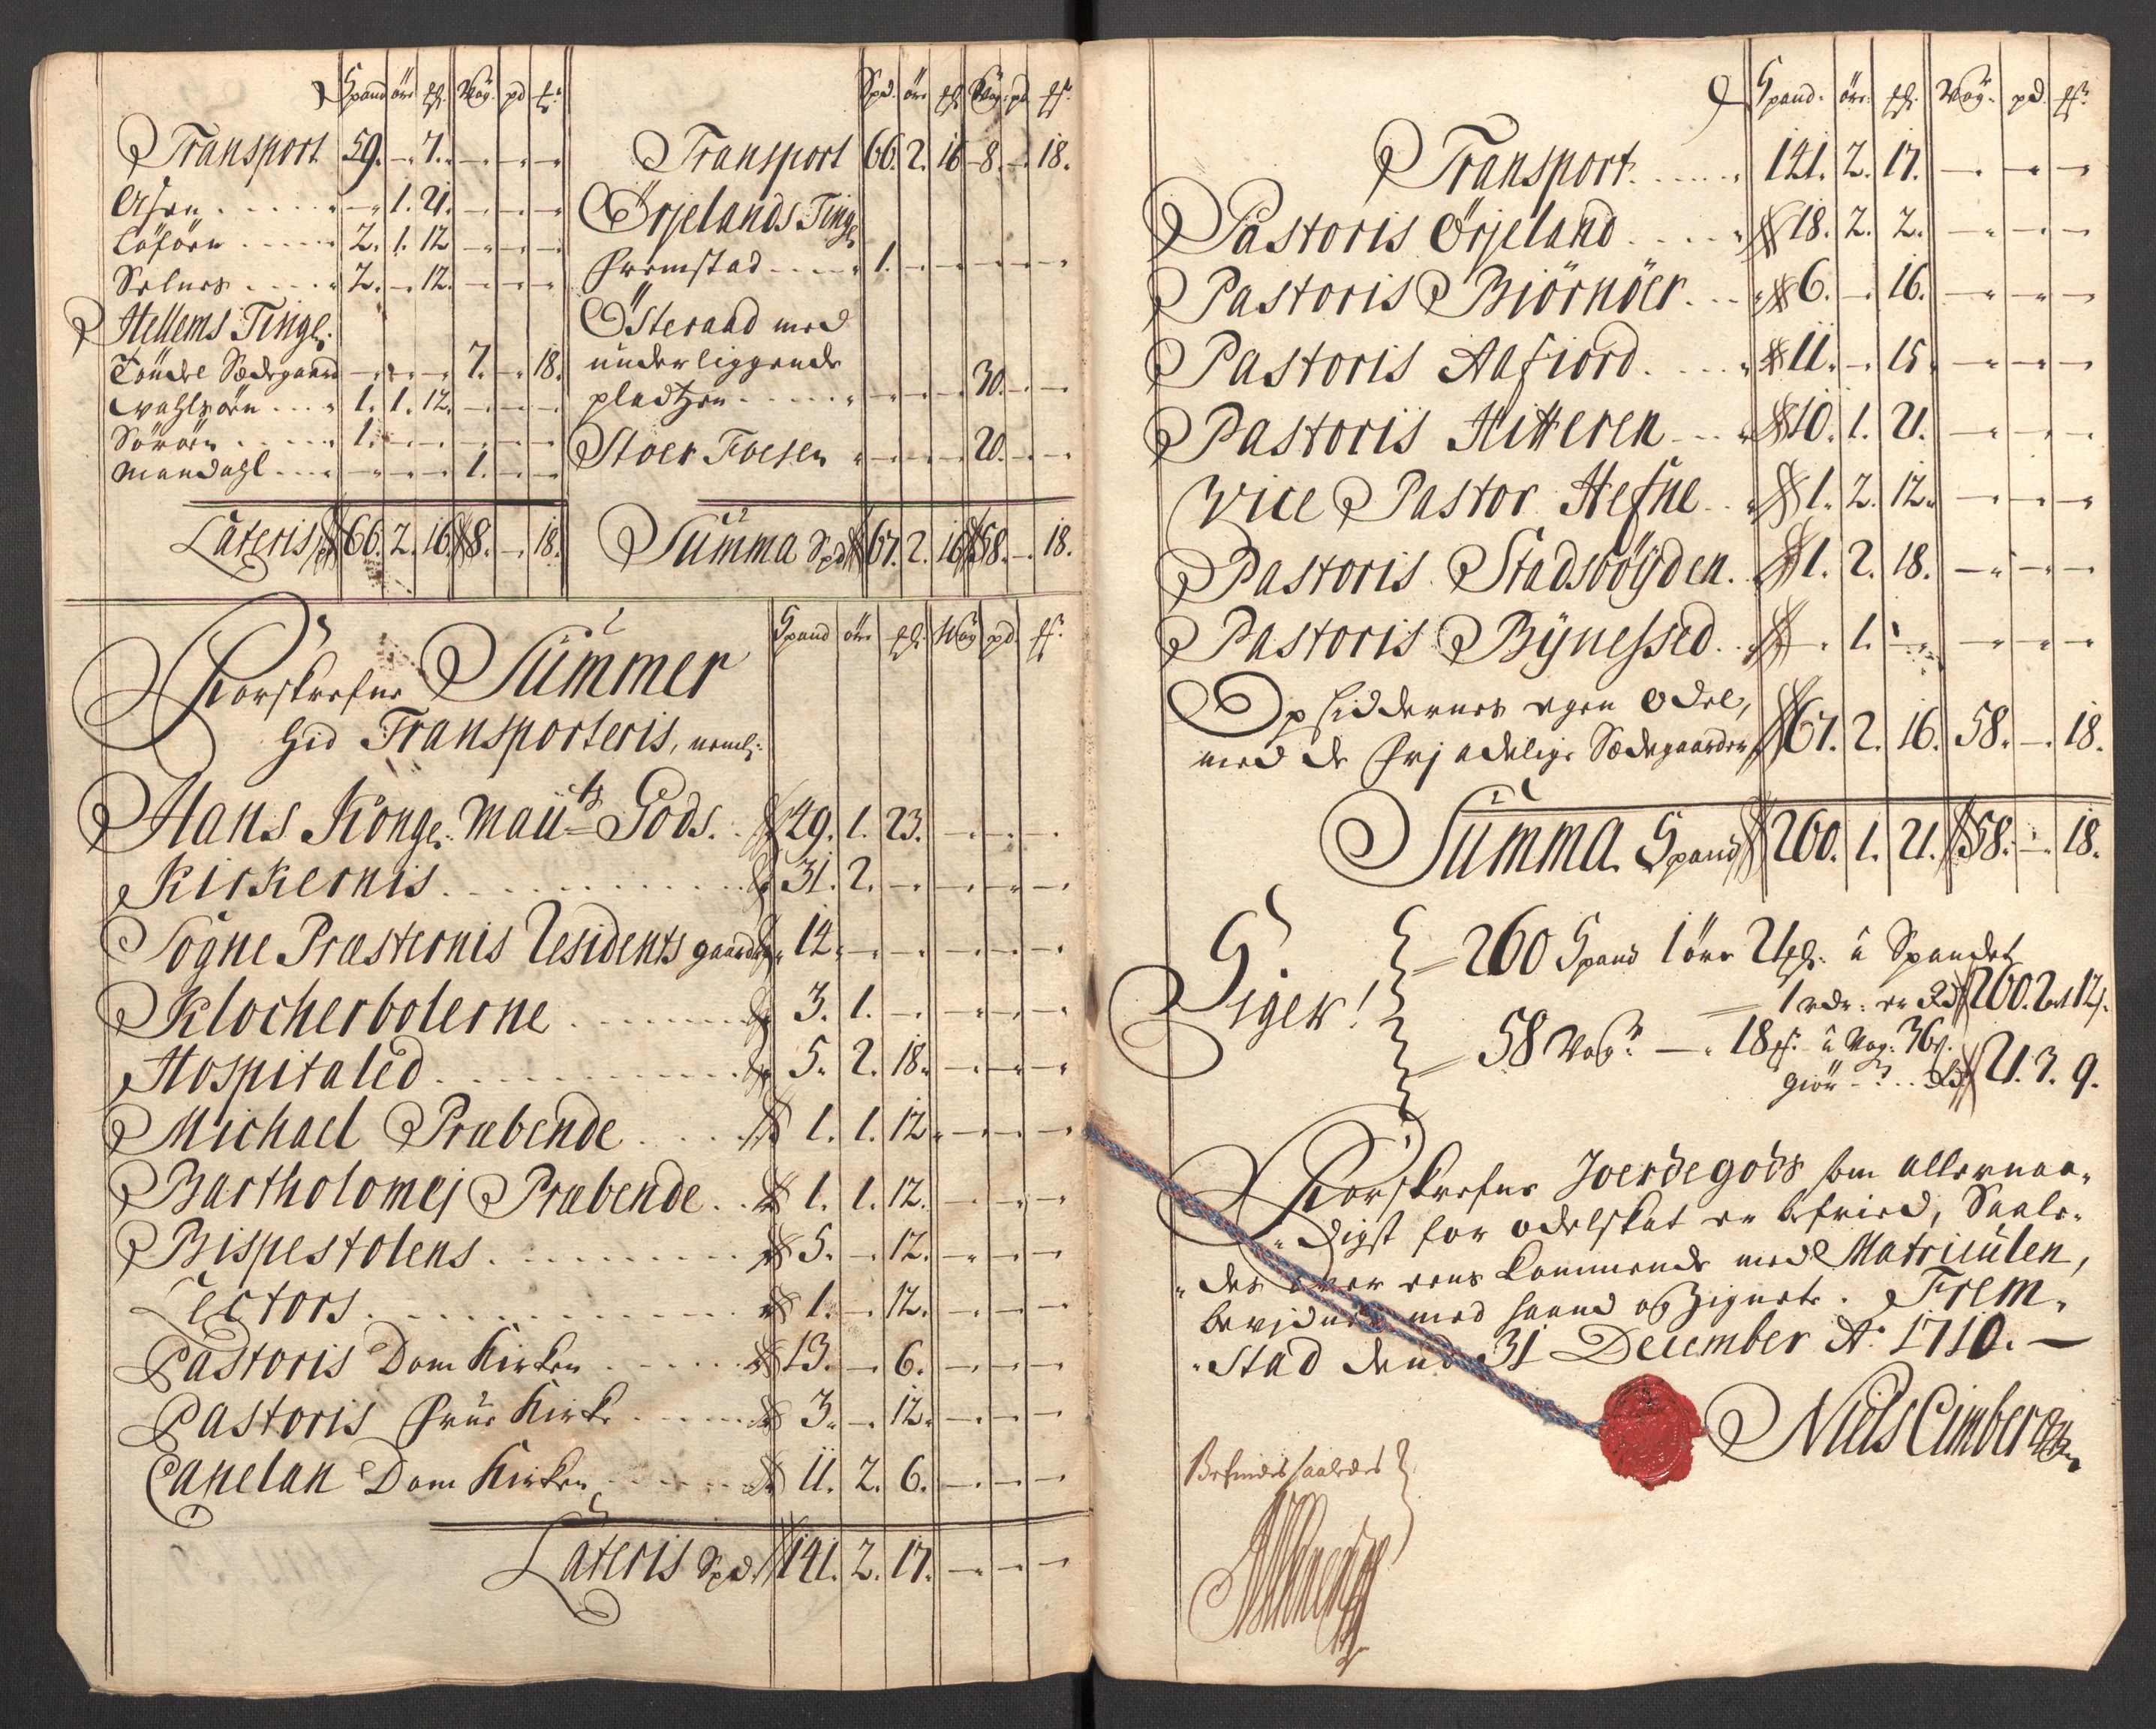 Spand öre Mg: Wog. pd
Transport 59. — 7. — — —
— 1. 21. — — —
Löfören 2. 1. 12 — — —
Selnes 2. — 12. — — —
Hellems Tinge:
Töndel Sædegaard — — — 7. — 18.
Wahlsörn 1. 1. 12. — — —
Sörörn 1. — — — — —
Mandahl — — — 1. — —
Lateris 66. 2. 16. 8. — 18.
Spd. öre Mg Wog: pd
Transport 66. 2. 16 — 8. — 18.
Örjelands Tinge
Fremstad 1. — — — — —
Österaad med
underliggende
pladtzen — — — 30. — —
Stoer Foesen — — — 20. — —
Summa Spd 67. 2. 16 58. — 18.
Spand öre Mg: Wog pd.
Forskrefne Summer
hid Transporteris, neml:
Hans Konge: Maÿts Gods. 29. 1. 23. — — —
Kirkernis 31. 2. — — — —
Sogne Præsternis Residents gaarder 12. — — — — —
Klocherbolerne 3. 1. — — — —
Hospitaled 5. 2. 18. — — —
Michael Præbende 1. 1. 12. — — —
Bartholomej Præbende 1. 1. 12. — — —
Bispestolens 5. — 12. — — —
Lectors 1. — 12. — — —
Pastoris Dom Kirken 13. — 6. — — —
Pastoris Frue Kirke 3. — 12. — — —
Capelan Dom Kirken 11. 2. 6. — — —
Lateris Spd. 121. 2. 17. — — —
Spand. öre. Mg. Wog. pd.
Transport. 121. 2. 17. — — —
Pastoris Örjeland 18. 2. 2. — — —
Pastoris Biörnöer 6. — 16. — — —
Pastoris Aafiord 11. — 15. — — —
Pastoris Hitteren 10. 1. 21. — — —
Vice Pastor Hefne 1. 2. 12. — — —
Pastoris Stadsböÿden 1. 2. 18. — — —
Pastoris Bÿnessed — 1. — — — —
Opsiddernes egen Odel,
med de frj adelige Sædegaarder 67. 2. 16. 58. — 18.
Summa Spand 260. 1. 21. 58. — 18.
Siger! 260 Spand 1 öre 21 Mg: â Spandet
1 rdr: er Rd 260. 2 ort 12 s.
58 Wog: — 18 â Wog: 36 s.
giör Rd 21. 3. 9.
Forskrefne Joerdegods som allernaa-
digst for odelskat er befried, Saale-
des over eens kommende med Matriculen,
bevidnes med haand og Zignete. Frem-
stad dend 31 December Ao 1710. —
Niels Cimber
Befindes saaledes